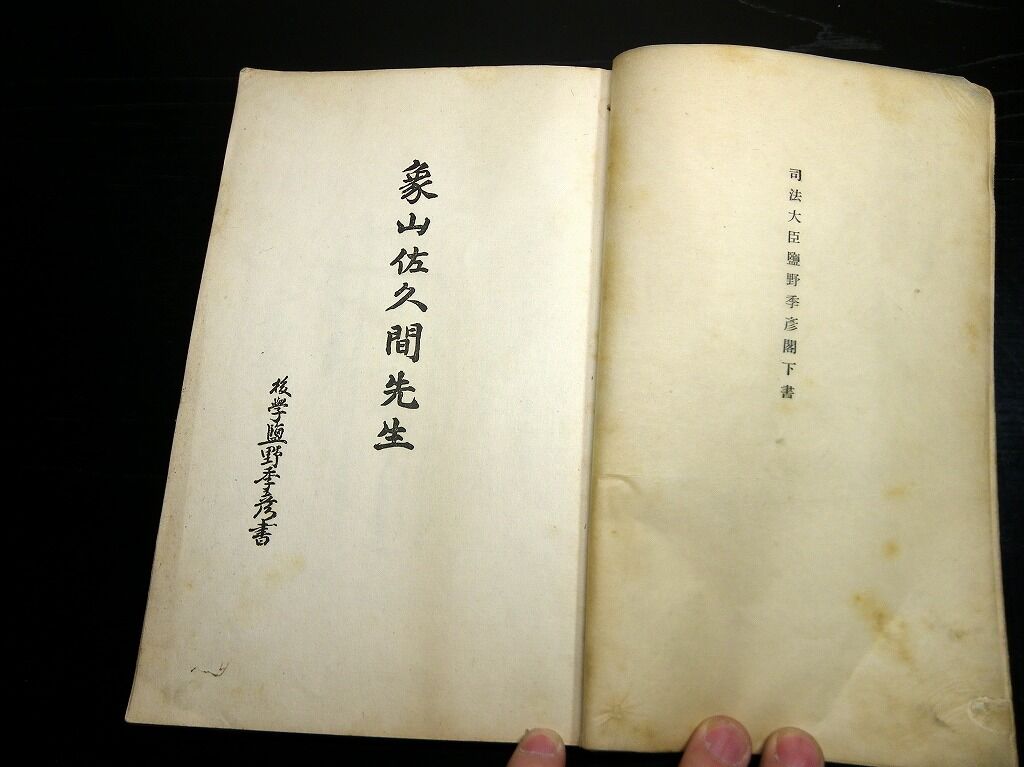 司法大臣鹽野季彦閣下書
象山佐久間先生
後學鹽野季彦書